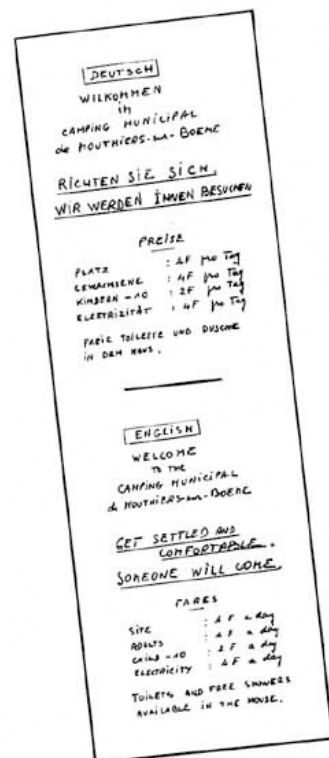 DEUTSCH
WILKOMMEN
in
CAMPING MUNICIPAL
de MOUTHIERS-sur-BOEME
RICHTEN SIE SICH,
WIR WERDEN IHNEN BESUCHEN
PREISE
PLATZ : 4F pro Tag
GEWACHSENE : 4F pro Tag
KINDERN -10 : 2F pro Tag
ELEKTRIZITÄT : 4F pro Tag
FREIE TOILETTE UND DUSCHE
IN DEM HAUS.
ENGLISH
WELCOME
TO THE
CAMPING MUNICIPAL
de MOUTHIERS-sur-BOEME
GET SETTLED AND
COMFORTABLE.
SOMEONE WILL COME.
FARES
SITE : 4F a day
ADULTS : 4F a day
CHILD -10 : 2F a day
ELECTRICITY : 4F a day
TOILETS AND FREE SHOWERS
AVAILABLE IN THE HOUSE.